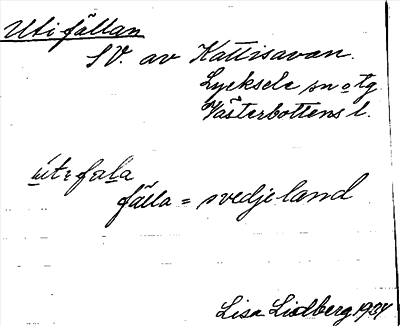 Uti fällan
SV. av Kattisavan.
Lycksele sn o tg
Västerbottens l.
fälla = svedjeland
Lisa Lidberg 1934